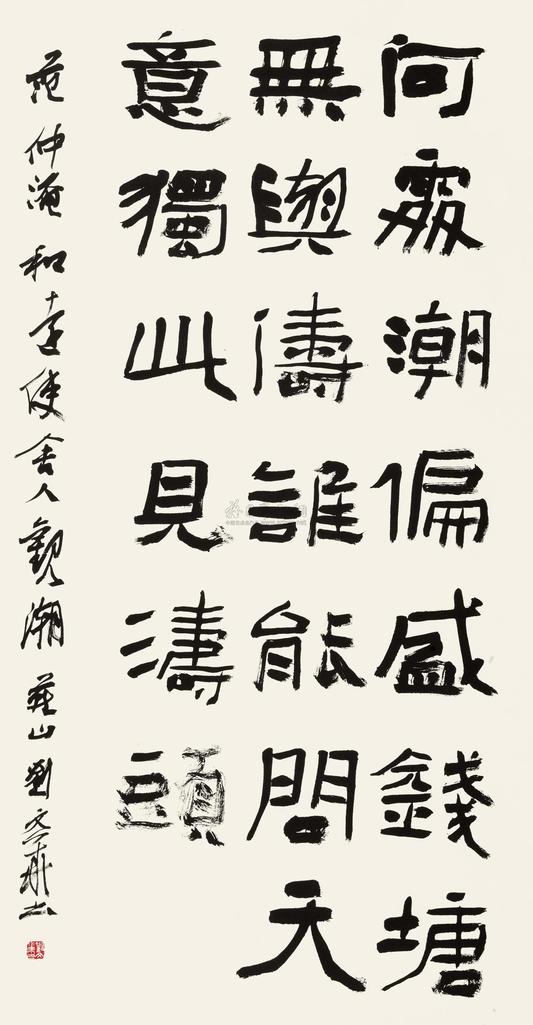 何處潮偏盛錢塘
無與儔誰能問天
意獨此見濤頭
范仲淹和運使舍人觀潮燕山劉文華书